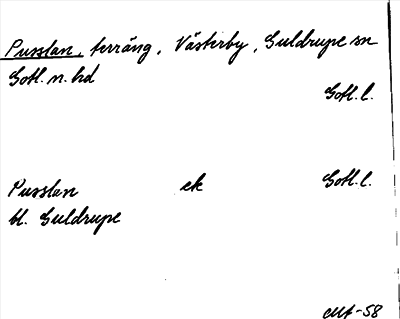 Pusslan, terräng, Västerby, Guldrupe sn
Gotl. n. hd
Gotl. l.
Pusslan ek Gotl. l.
bl. Guldrupe